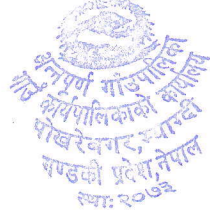 अन्नपूर्ण गाउँपालिका
गाउँ कार्यपालिकाको कार्यालय
पोखरेबगर, म्याग्दी
गण्डकी प्रदेश, नेपाल
स्था: २०७३